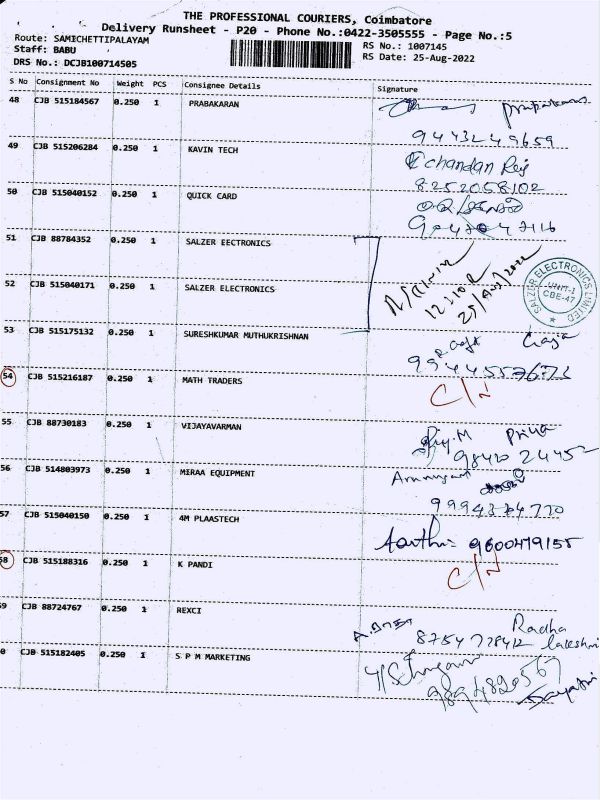 THE PROFESSIONAL COURIERS, Coimbatore
Delivery Runsheet - P20 - Phone No.:0422-3505555 - Page No.:5
Route: SAMICHETTIPALAYAM
RS No.: 1007145
Staff: BABU
RS Date: 25-Aug-2022
DRS No.: DCJB100714505
S No Consignment No Weight PCS Consignee Details Signature
48 CJB 515184567 0.250 1 PRABAKARAN
9443249659
49 CJB 515206284 0.250 1 KAVIN TECH chandan Raj
8252058102
50 CJB 515040152 0.250 1 QUICK CARD
51 CJB 88784352 0.250 1 SALZER EECTRONICS
52 CJB 515040171 0.250 1 SALZER ELECTRONICS
25/Aug/2022
SALZER ELECTRONICS LIMITED
UNIT-1
CBE-47
53 CJB 515175132 0.250 1 SURESHKUMAR MUTHUKRISHNAN
54 CJB 515216187 0.250 1 MATH TRADERS C/N
55 CJB 88730183 0.250 1 VIJAYAVARMAN Priya
98420 24452
56 CJB 514803973 0.250 1 MIRAA EQUIPMENT
57 CJB 515040150 0.250 1 4M PLAASTECH Aarthi - 9600479155
58 CJB 515188316 0.250 1 K PANDI C/N
59 CJB 88724767 0.250 1 REXCI Radha
8754778412 lakshmi
0 CJB 515182405 0.250 1 S P M MARKETING
9894820567